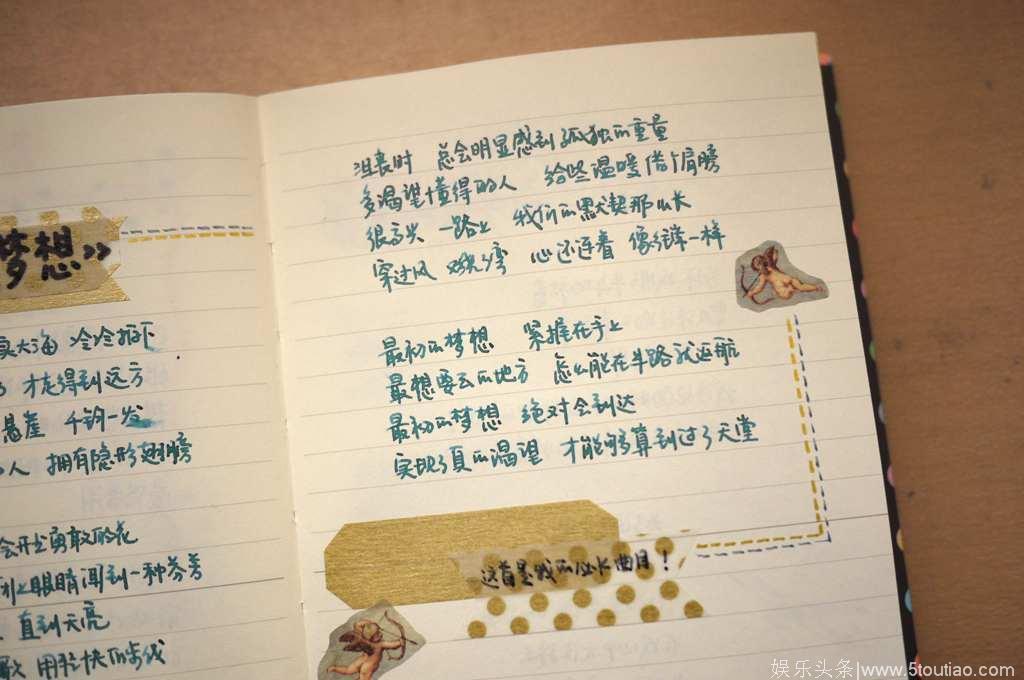 梦想》
实大海 冷冷拍下
才走得到远方
悬崖 千钧一发
人 拥有隐形翅膀
会开出勇敢的花
上眼睛闻到一种芬芳
直到天亮
歌 用轻快的步伐
沮丧时 总会明显感到孤独的重量
多渴望懂得的人 给些温暖借个肩膀
很高兴 一路上 我们的默契那么长
穿过风 又绕个弯 心还连着 像往常一样
最初的梦想 紧握在手上
最想要去的地方 怎么能在半路就返航
最初的梦想 绝对会到达
实现了真的渴望 才能够算到过了天堂
这首是我的必长曲目！
娱乐头条|www.5toutiao.com